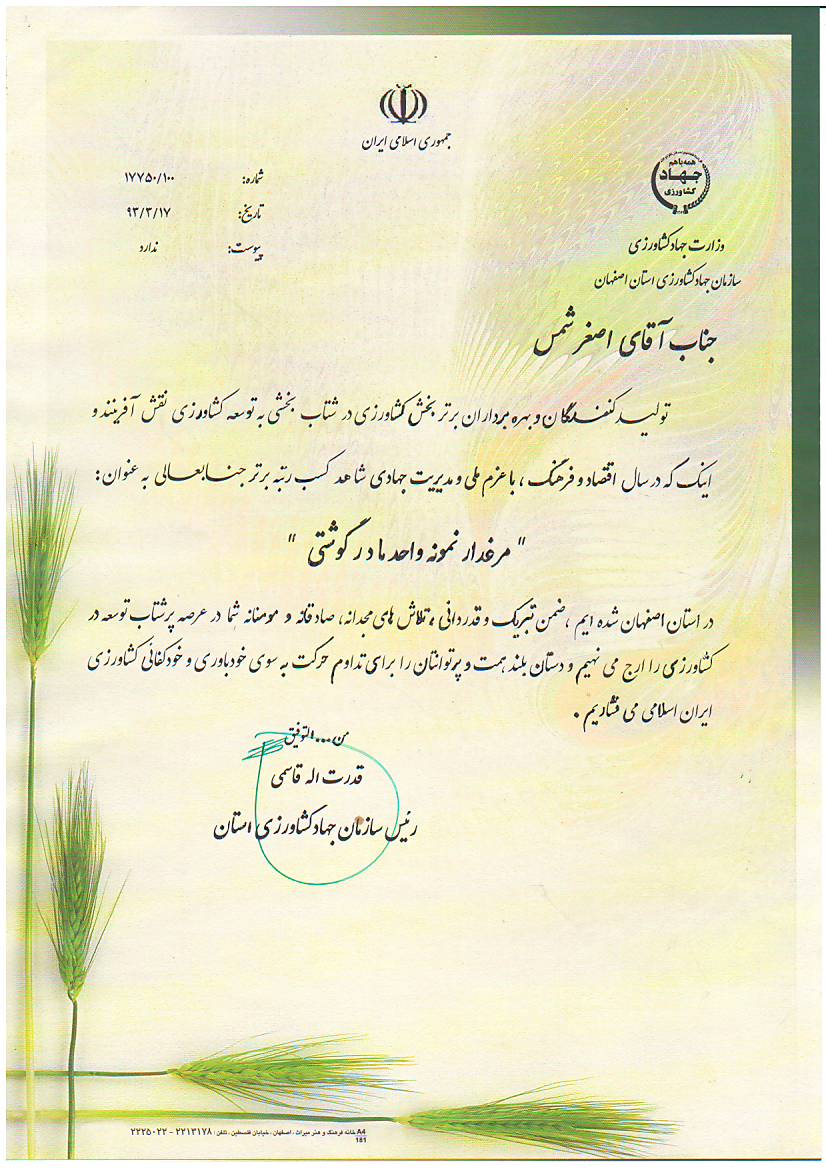 جمهوری اسلامی ایران
همه با هم
جهاد
کشاورزی
شماره: ۱۷۷۵۰/۱۰۰
تاریخ: ۹۳/۳/۱۷
پیوست: ندارد
وزارت جهاد کشاورزی
سازمان جهاد کشاورزی استان اصفهان
جناب آقای اصغر شمس
تولید کنندگان و بهره برداران برتر بخش کشاورزی در شتاب بخشی به توسعه کشاورزی نقش آفرینند و
اینک که در سال اقتصاد و فرهنگ ، با عزم ملی و مدیریت جهادی شاهد کسب رتبه برتر جنابعالی به عنوان :
" مرغدار نمونه واحد مادر گوشتی "
در استان اصفهان شده ایم ، ضمن تبریک و قدردانی ، تلاش های مجدانه ، صادقانه و مومنانه شما در عرصه پرشتاب توسعه در
کشاورزی را ارج می نهیم و دستان بلند همت و پرتوانتان را برای تداوم حرکت به سوی خودباوری و خودکفائی کشاورزی
ایران اسلامی می فشاریم .
من ... التوفیق
قدرت اله قاسمی
رئیس سازمان جهاد کشاورزی استان
A4 خانه فرهنگ و هنر میراث ، اصفهان ، خیابان فلسطین ، تلفن : ۲۲۱۳۱۷۸ - ۲۲۲۵۰۲۲
181